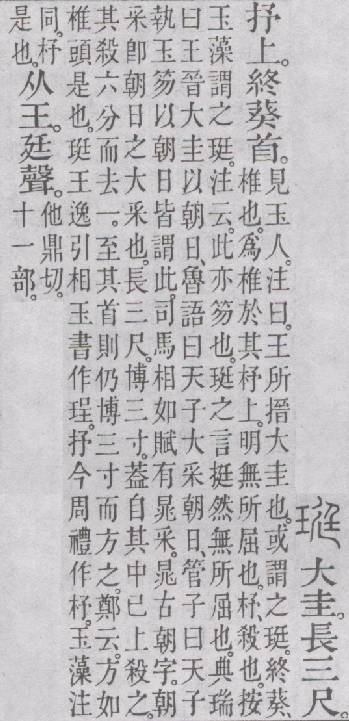 珽 大圭。長三尺。
抒上。終葵首。見玉人。注曰。王所搢大圭也。或謂之珽。終葵
椎也。爲椎於其杼上。明無所屈也。杼、殺也。按
玉藻謂之珽。注云。此亦笏也。珽之言挺然無所屈也。典瑞
曰王晉大圭以朝日、魯語曰天子大采朝日、管子曰天子
執玉笏以朝日皆謂此。司馬相如賦有晁采。晁古朝字。朝
采卽朝日之大采也。長三尺。博三寸。葢自其中已上殺之。
其殺六分而去一。至其首則仍博三寸而方之。鄭云。方如
椎頭是也。珽王逸引相玉書作珵。抒今周禮作杼。玉藻注
同。杼
是也。从王。廷聲。他鼎切。
十一部。